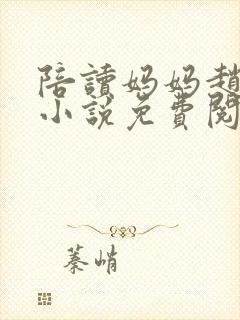 陪讀媽媽趙
小說免費閱
蓁峭